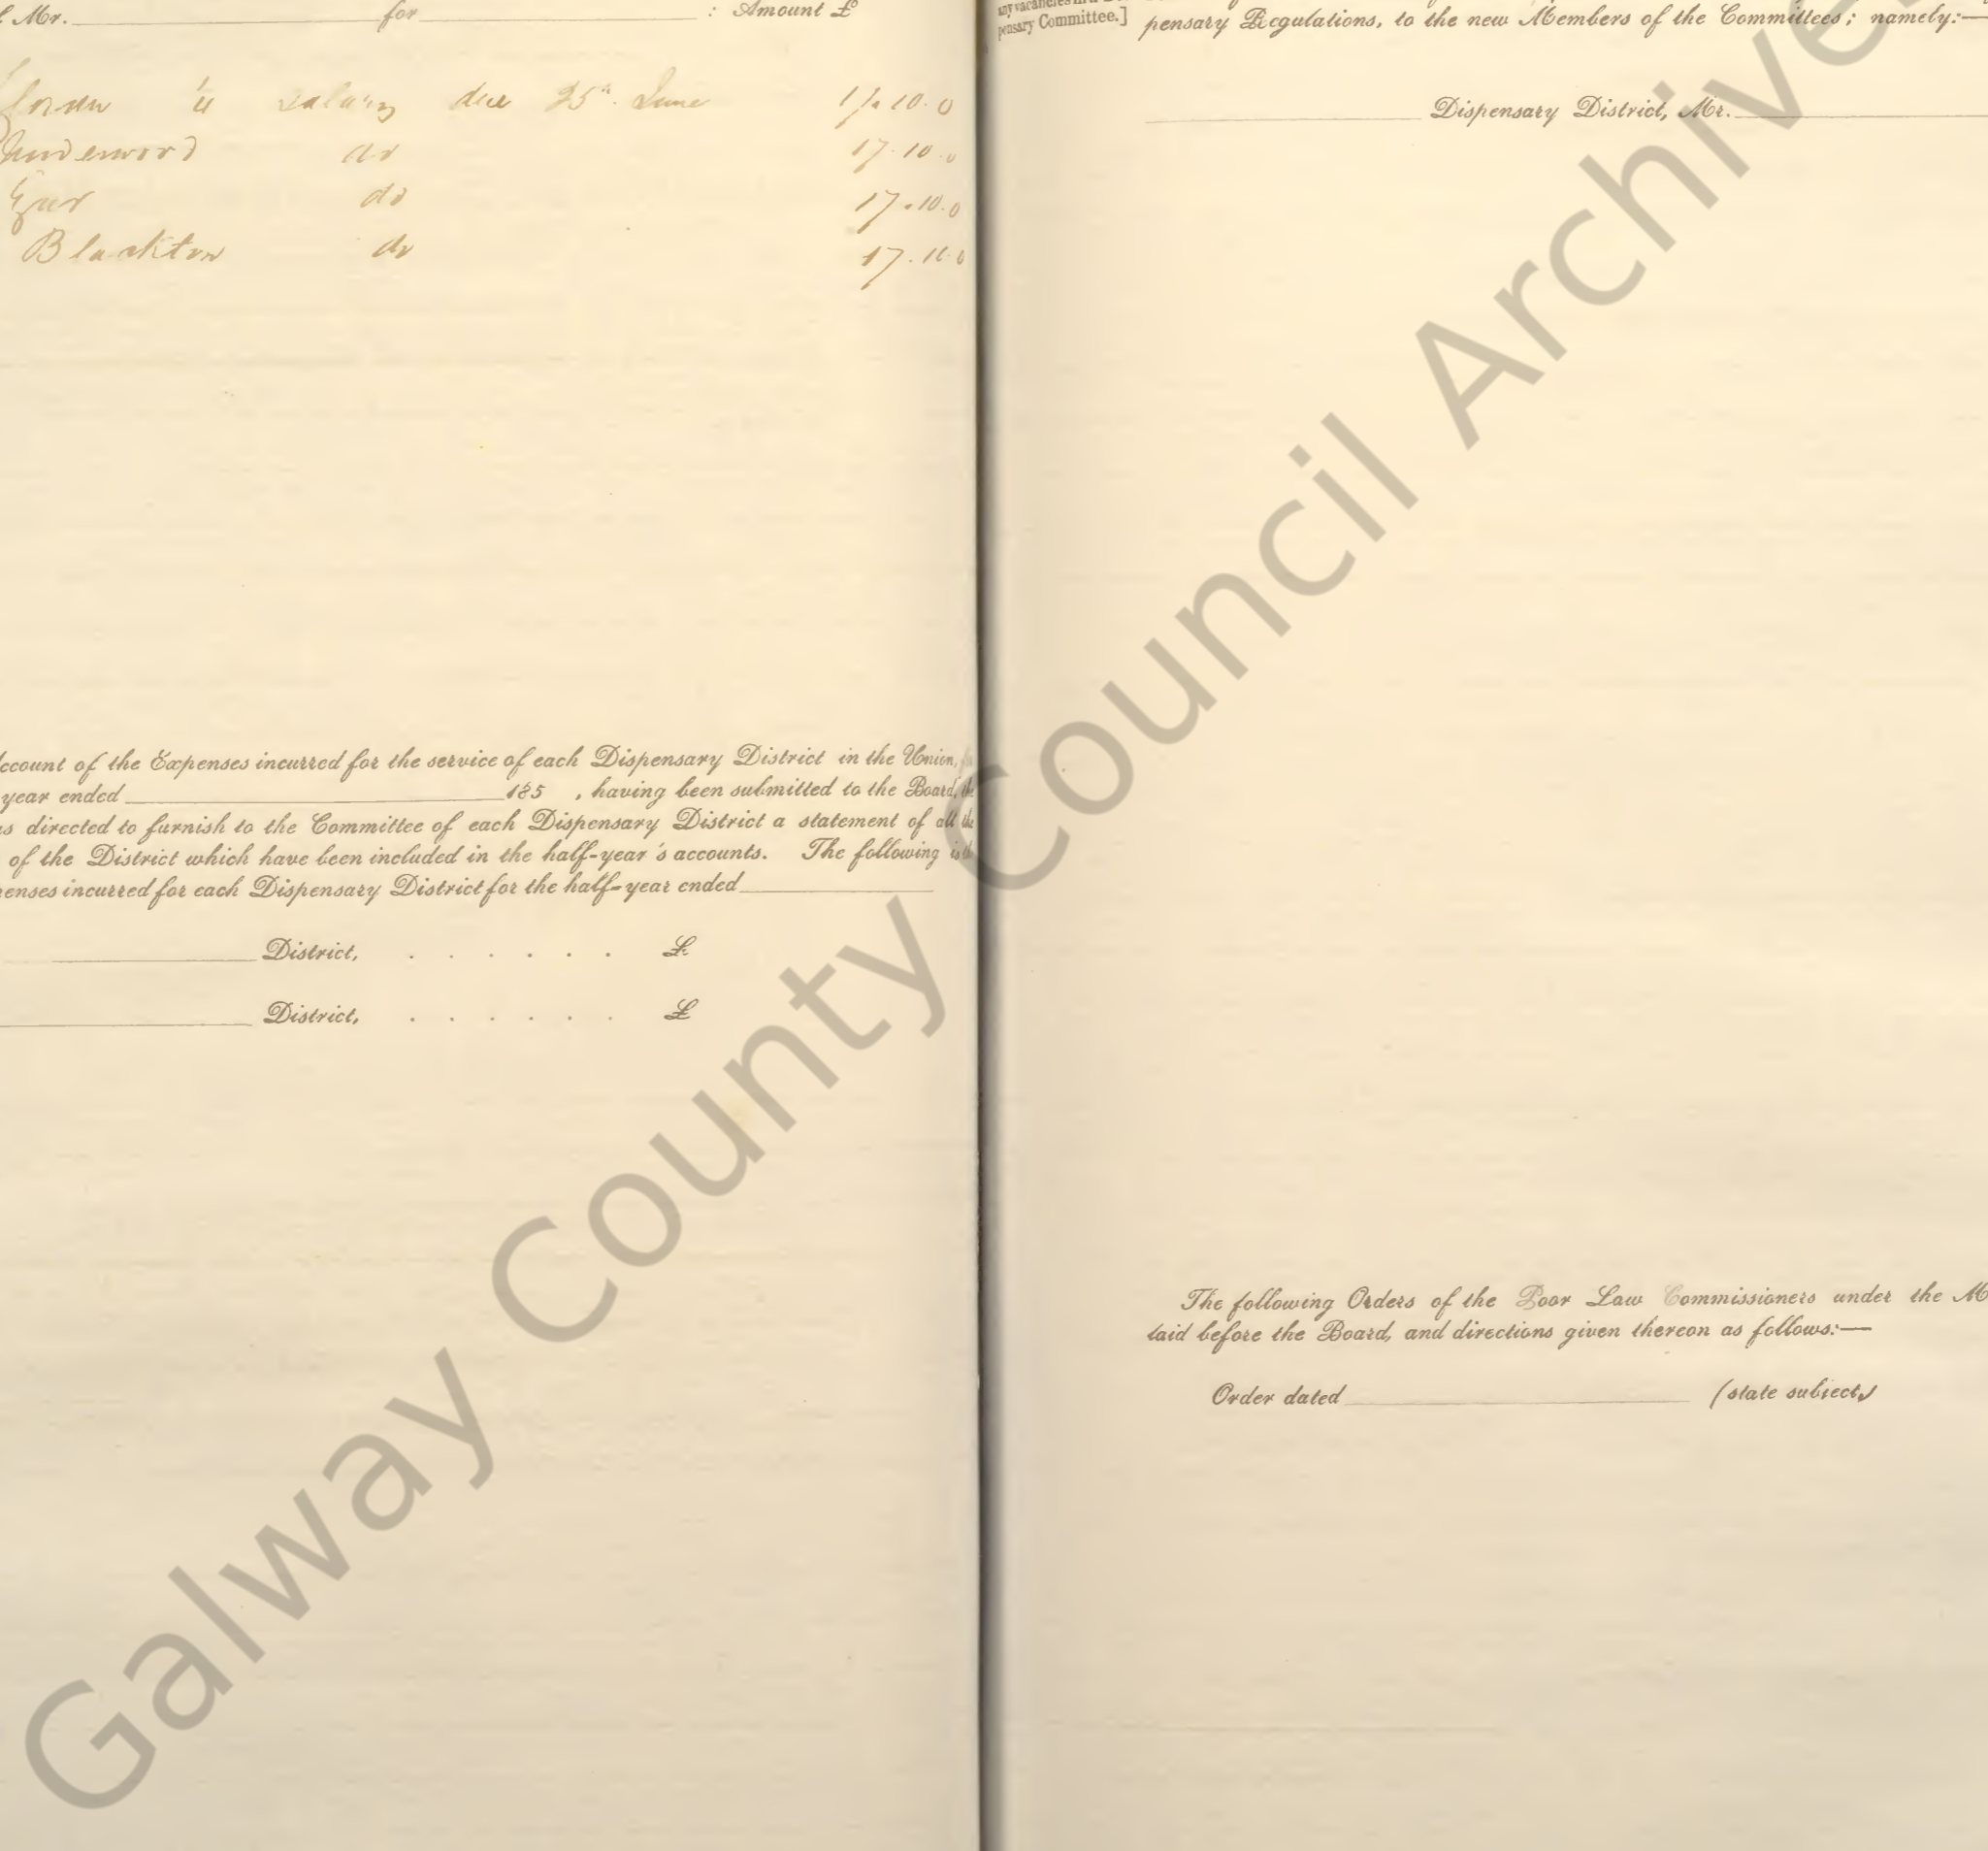 Mr. for : Amount £
salary due 25th June 17.10.0
Underwood do 17.10.0
do 17.10.0
Blackton do 17.10.0
ccount of the Expenses incurred for the service of each Dispensary District in the Union,
year ended 185 , having been submitted to the Board, the
s directed to furnish to the Committee of each Dispensary District a statement of all the
of the District which have been included in the half-year's accounts. The following is the
enses incurred for each Dispensary District for the half-year ended
District, . . . . . . £
District, . . . . . . £
any vacancies in a
pensary Committee.]
pensary Regulations, to the new Members of the Committees; namely:—
Dispensary District, Mr.
The following Orders of the Poor Law Commissioners under the M
laid before the Board, and directions given thereon as follows:—
Order dated (state subject)
Galway County Council Archive